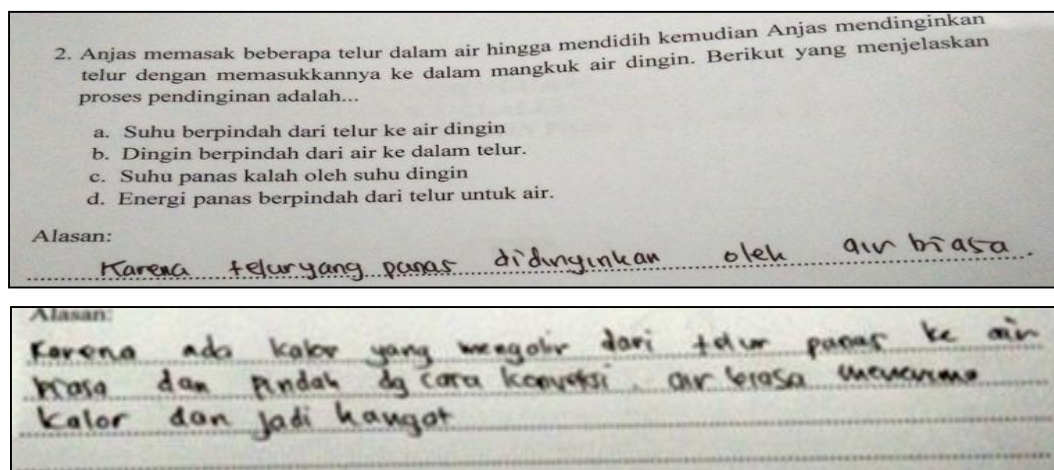 2. Anjas memasak beberapa telur dalam air hingga mendidih kemudian Anjas mendinginkan
telur dengan memasukkannya ke dalam mangkuk air dingin. Berikut yang menjelaskan
proses pendinginan adalah...
a. Suhu berpindah dari telur ke air dingin
b. Dingin berpindah dari air ke dalam telur.
c. Suhu panas kalah oleh suhu dingin
d. Energi panas berpindah dari telur untuk air.
Alasan:
Karena telur yang panas didinginkan oleh air biasa.
Alasan:
Karena ada kalor yang mengalir dari telur panas ke air
biasa dan pindah dg cara konveksi. air biasa menerima
kalor dan jadi hangat